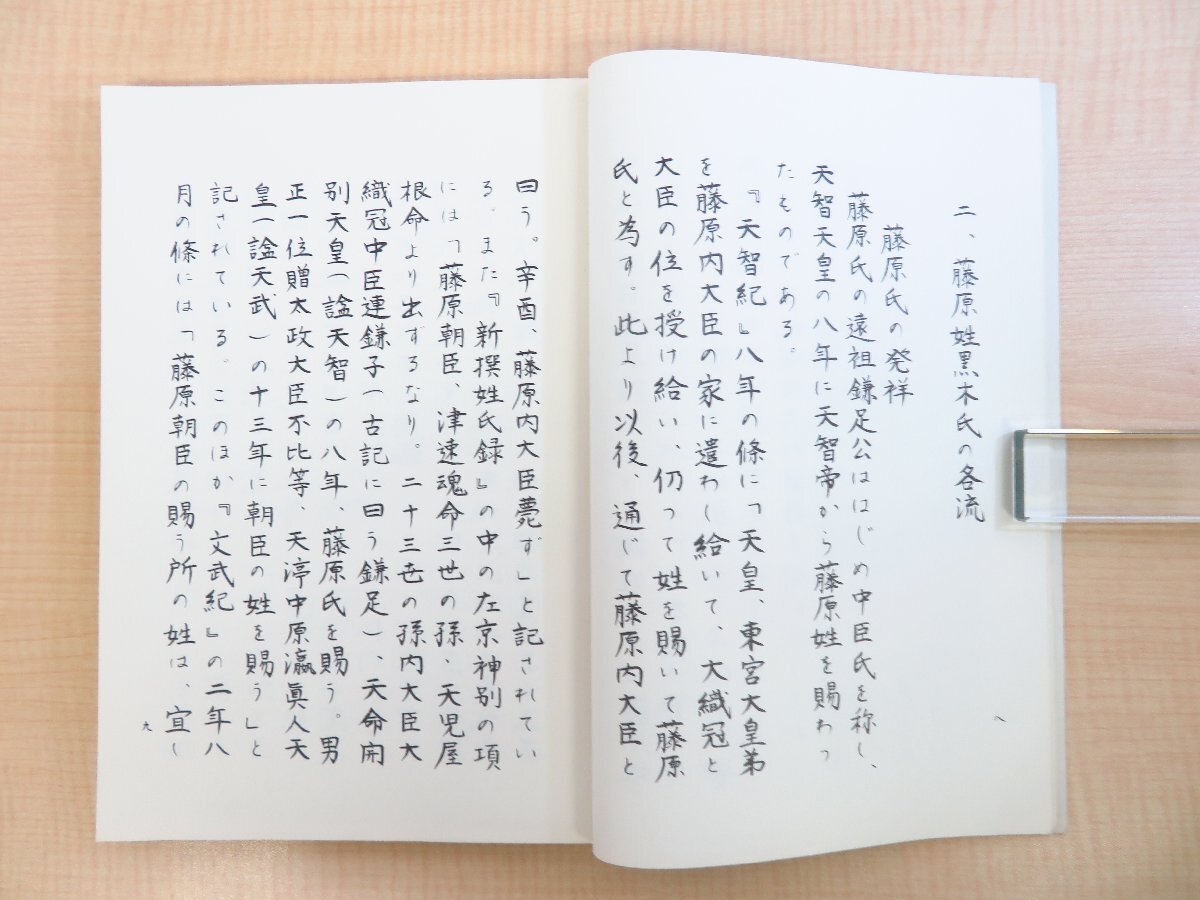 二、藤原姓黒木氏の各流
藤原氏の発祥
藤原氏の遠祖鎌足公ははじめ中臣氏を称し、
天智天皇の八年に天智帝から藤原姓を賜わっ
たものである。
『天智紀』八年の條に「天皇、東宮大皇弟
を藤原内大臣の家に遣わし給いて、大織冠と
大臣の位を授け給い、仍って姓を賜いて藤原
氏と為す。此より以後、通じて藤原内大臣と
八
曰う。辛酉、藤原内大臣薨ず」と記されてい
る。また『新撰姓氏録』の中の左京神別の項
には「藤原朝臣、津速魂命三世の孫、天児屋
根命より出ずるなり。二十三世の孫内大臣大
織冠中臣連鎌子(古記に曰う鎌足)、天命開
別天皇(諡天智)の八年、藤原氏を賜う。男
正一位贈太政大臣不比等、天渟中原瀛眞人天
皇(諡天武)の十三年に朝臣の姓を賜う」と
記されている。このほか『文武紀』の二年八
月の條には「藤原朝臣の賜う所の姓は、宜し
九